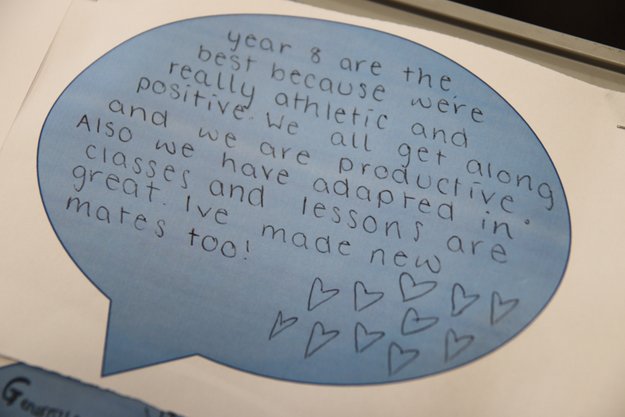 year 8 are the
best because we're
really athletic and
positive. We all get along
and we are productive.
Also we have adapted in
classes and lessons are
great. I've made new
mates too!